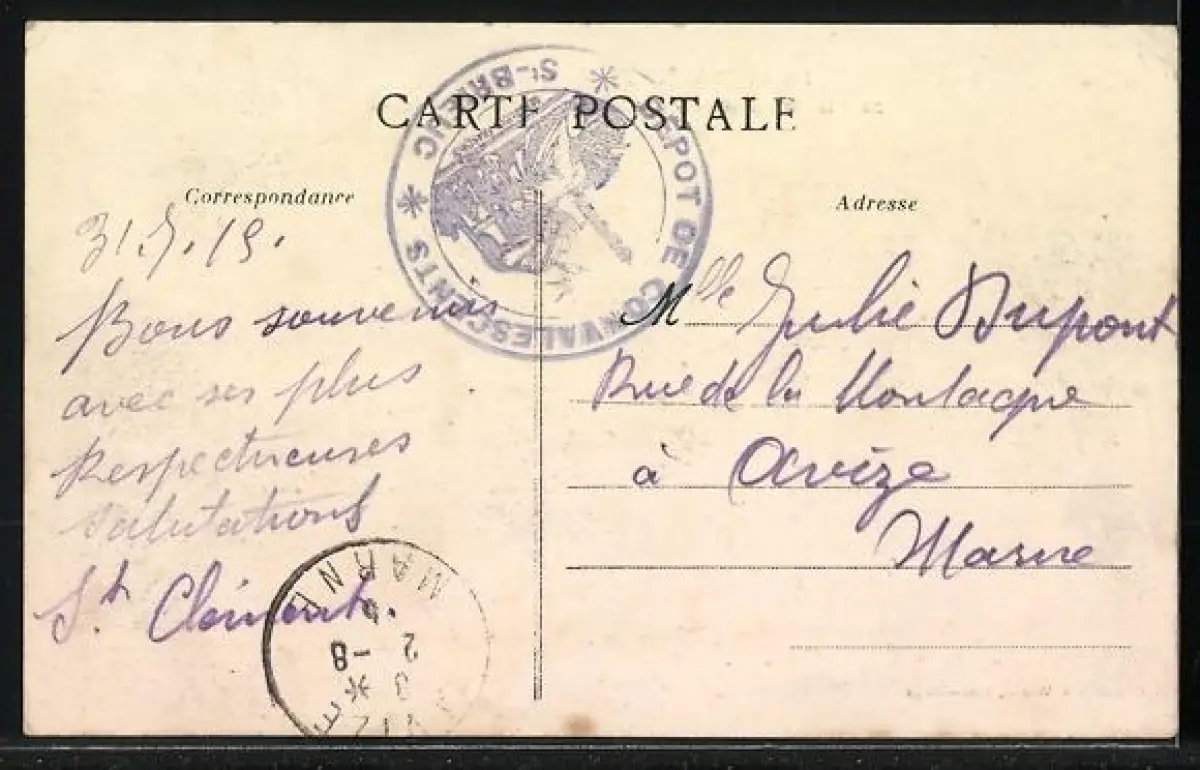 CARTE POSTALE
Correspondance
Adresse
ST-BRIEUC * DEPOT DE CONVALESCENTS *
Bons souvenirs
avec ses plus
Respectueuses
salutations
St Clément.
Mlle Julie Dupont
Rue de la Montagne
à Avize
Marne
AVIZE * MARNE
2 -8